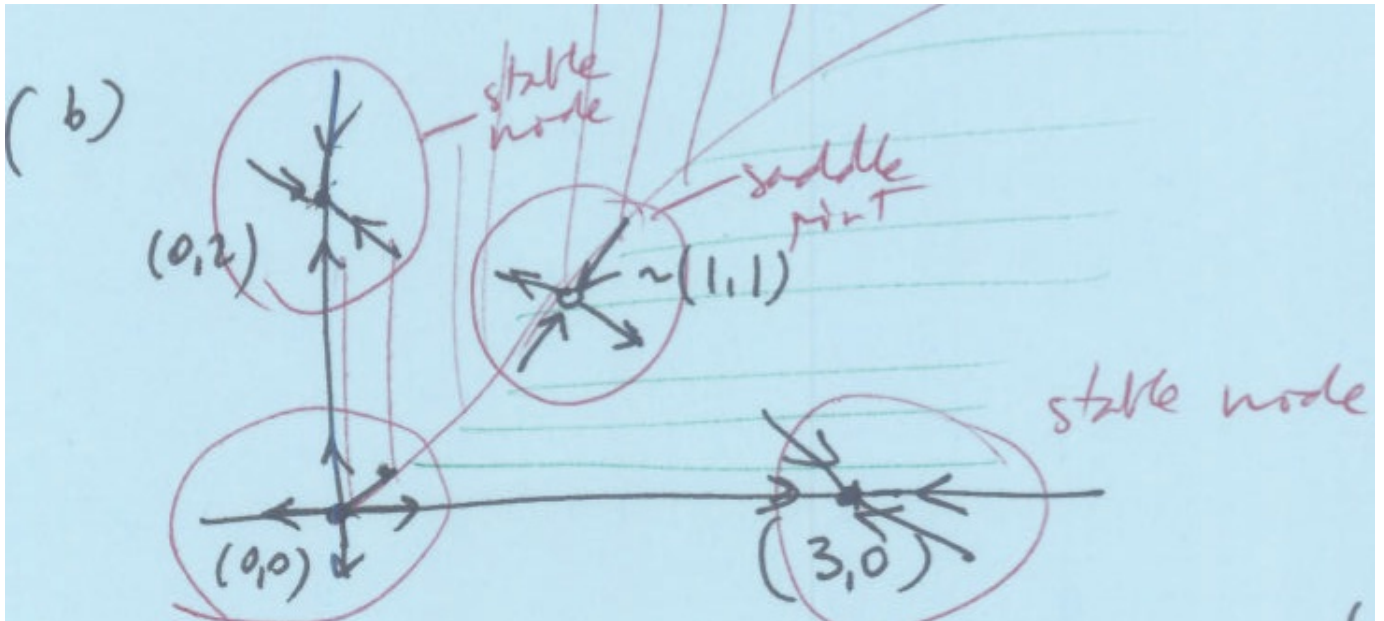 (b)
stable
node
saddle
point
(0,2)
~(1,1)
stable node
(0,0)
(3,0)